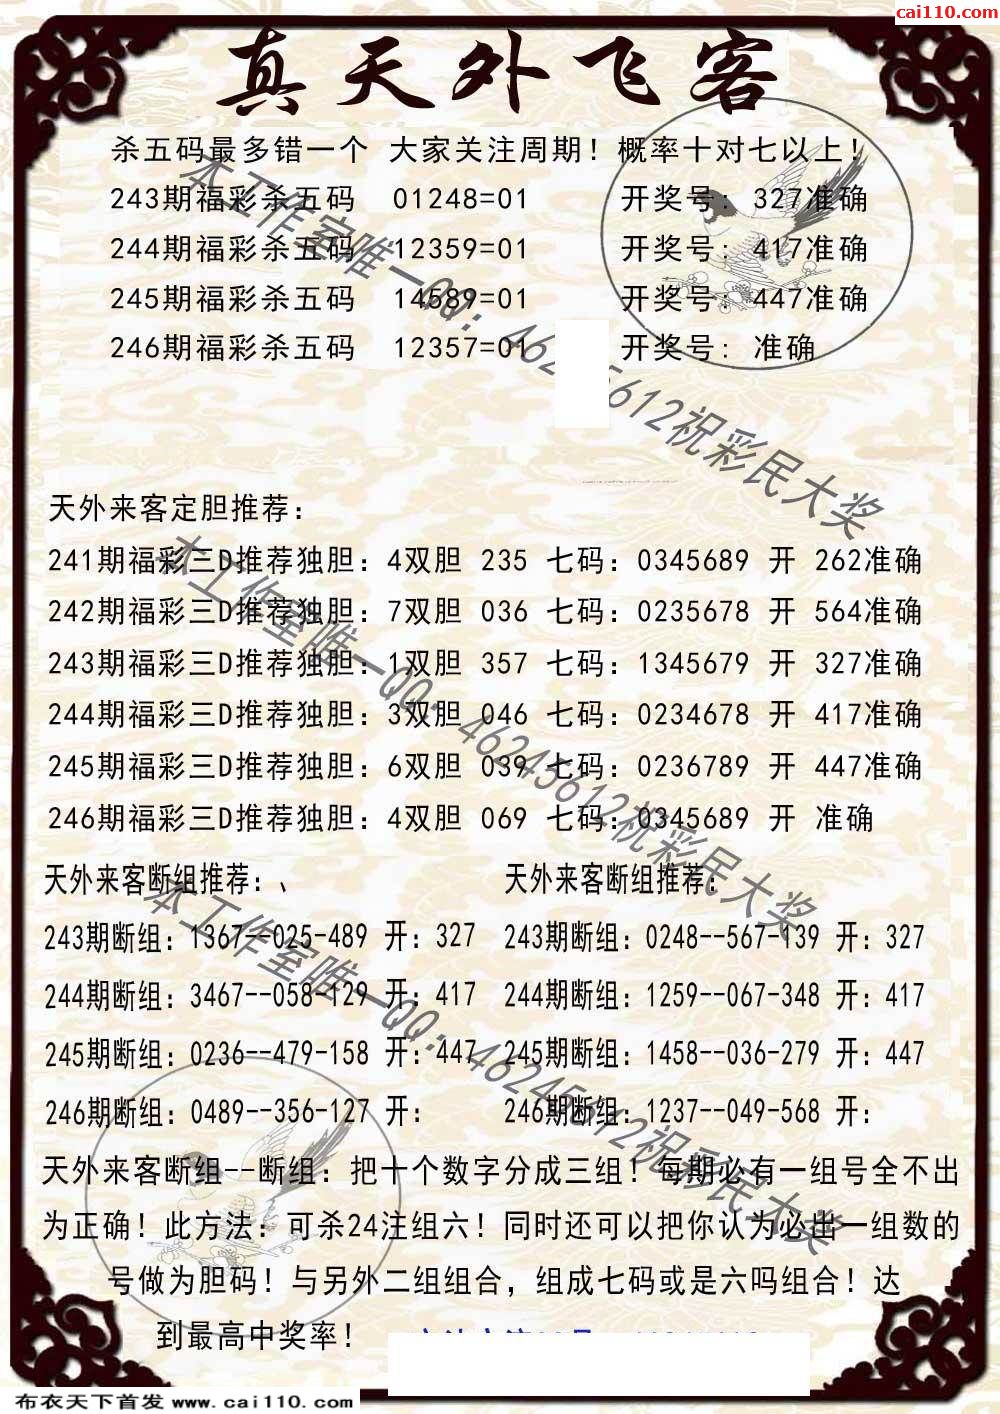 cai110.com
真天外飞客
杀五码最多错一个 大家关注周期！概率十对七以上！
243期福彩杀五码 01248=01 开奖号：327准确
244期福彩杀五码 12359=01 开奖号：417准确
245期福彩杀五码 14589=01 开奖号：447准确
246期福彩杀五码 12357=01 开奖号：准确
本工作室唯一QQ：46245612祝彩民大奖
天外来客定胆推荐：
241期福彩三D推荐独胆：4双胆 235 七码：0345689 开 262准确
242期福彩三D推荐独胆：7双胆 036 七码：0235678 开 564准确
243期福彩三D推荐独胆：1双胆 357 七码：1345679 开 327准确
244期福彩三D推荐独胆：3双胆 046 七码：0234678 开 417准确
245期福彩三D推荐独胆：6双胆 039 七码：0236789 开 447准确
246期福彩三D推荐独胆：4双胆 069 七码：0345689 开 准确
本工作室唯一QQ：46245612祝彩民大奖
天外来客断组推荐：、 天外来客断组推荐：
243期断组：1367--025-489 开：327 243期断组：0248--567-139 开：327
244期断组：3467--058-129 开：417 244期断组：1259--067-348 开：417
245期断组：0236--479-158 开：447 245期断组：1458--036-279 开：447
246期断组：0489--356-127 开： 246期断组：1237--049-568 开：
本工作室唯一QQ：46245612祝彩民大奖
天外来客断组--断组：把十个数字分成三组！每期必有一组号全不出
为正确！此方法：可杀24注组六！同时还可以把你认为必出一组数的
号做为胆码！与另外二组组合，组成七码或是六吗组合！达
到最高中奖率！
布衣天下首发 www.cai110.com